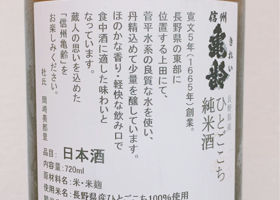 信州
亀齢
きれい
長野県産
ひとごこち
純米酒
寛文5年(1665年)創業。
長野県の東部に
位置する上田にて、
菅平水系の良質な水を使い、
丹精込めて少量を醸しています。
ほのかな香り・軽快な飲み口で
食中酒に適した味わいと
なっています。
蔵人の思いを込めた
「信州亀齢」を
お楽しみください。
杜氏 岡崎美都里
日本酒
内容量:720ml
原材料名:米・米麹
使用米:長野県産ひとごこち100%使用